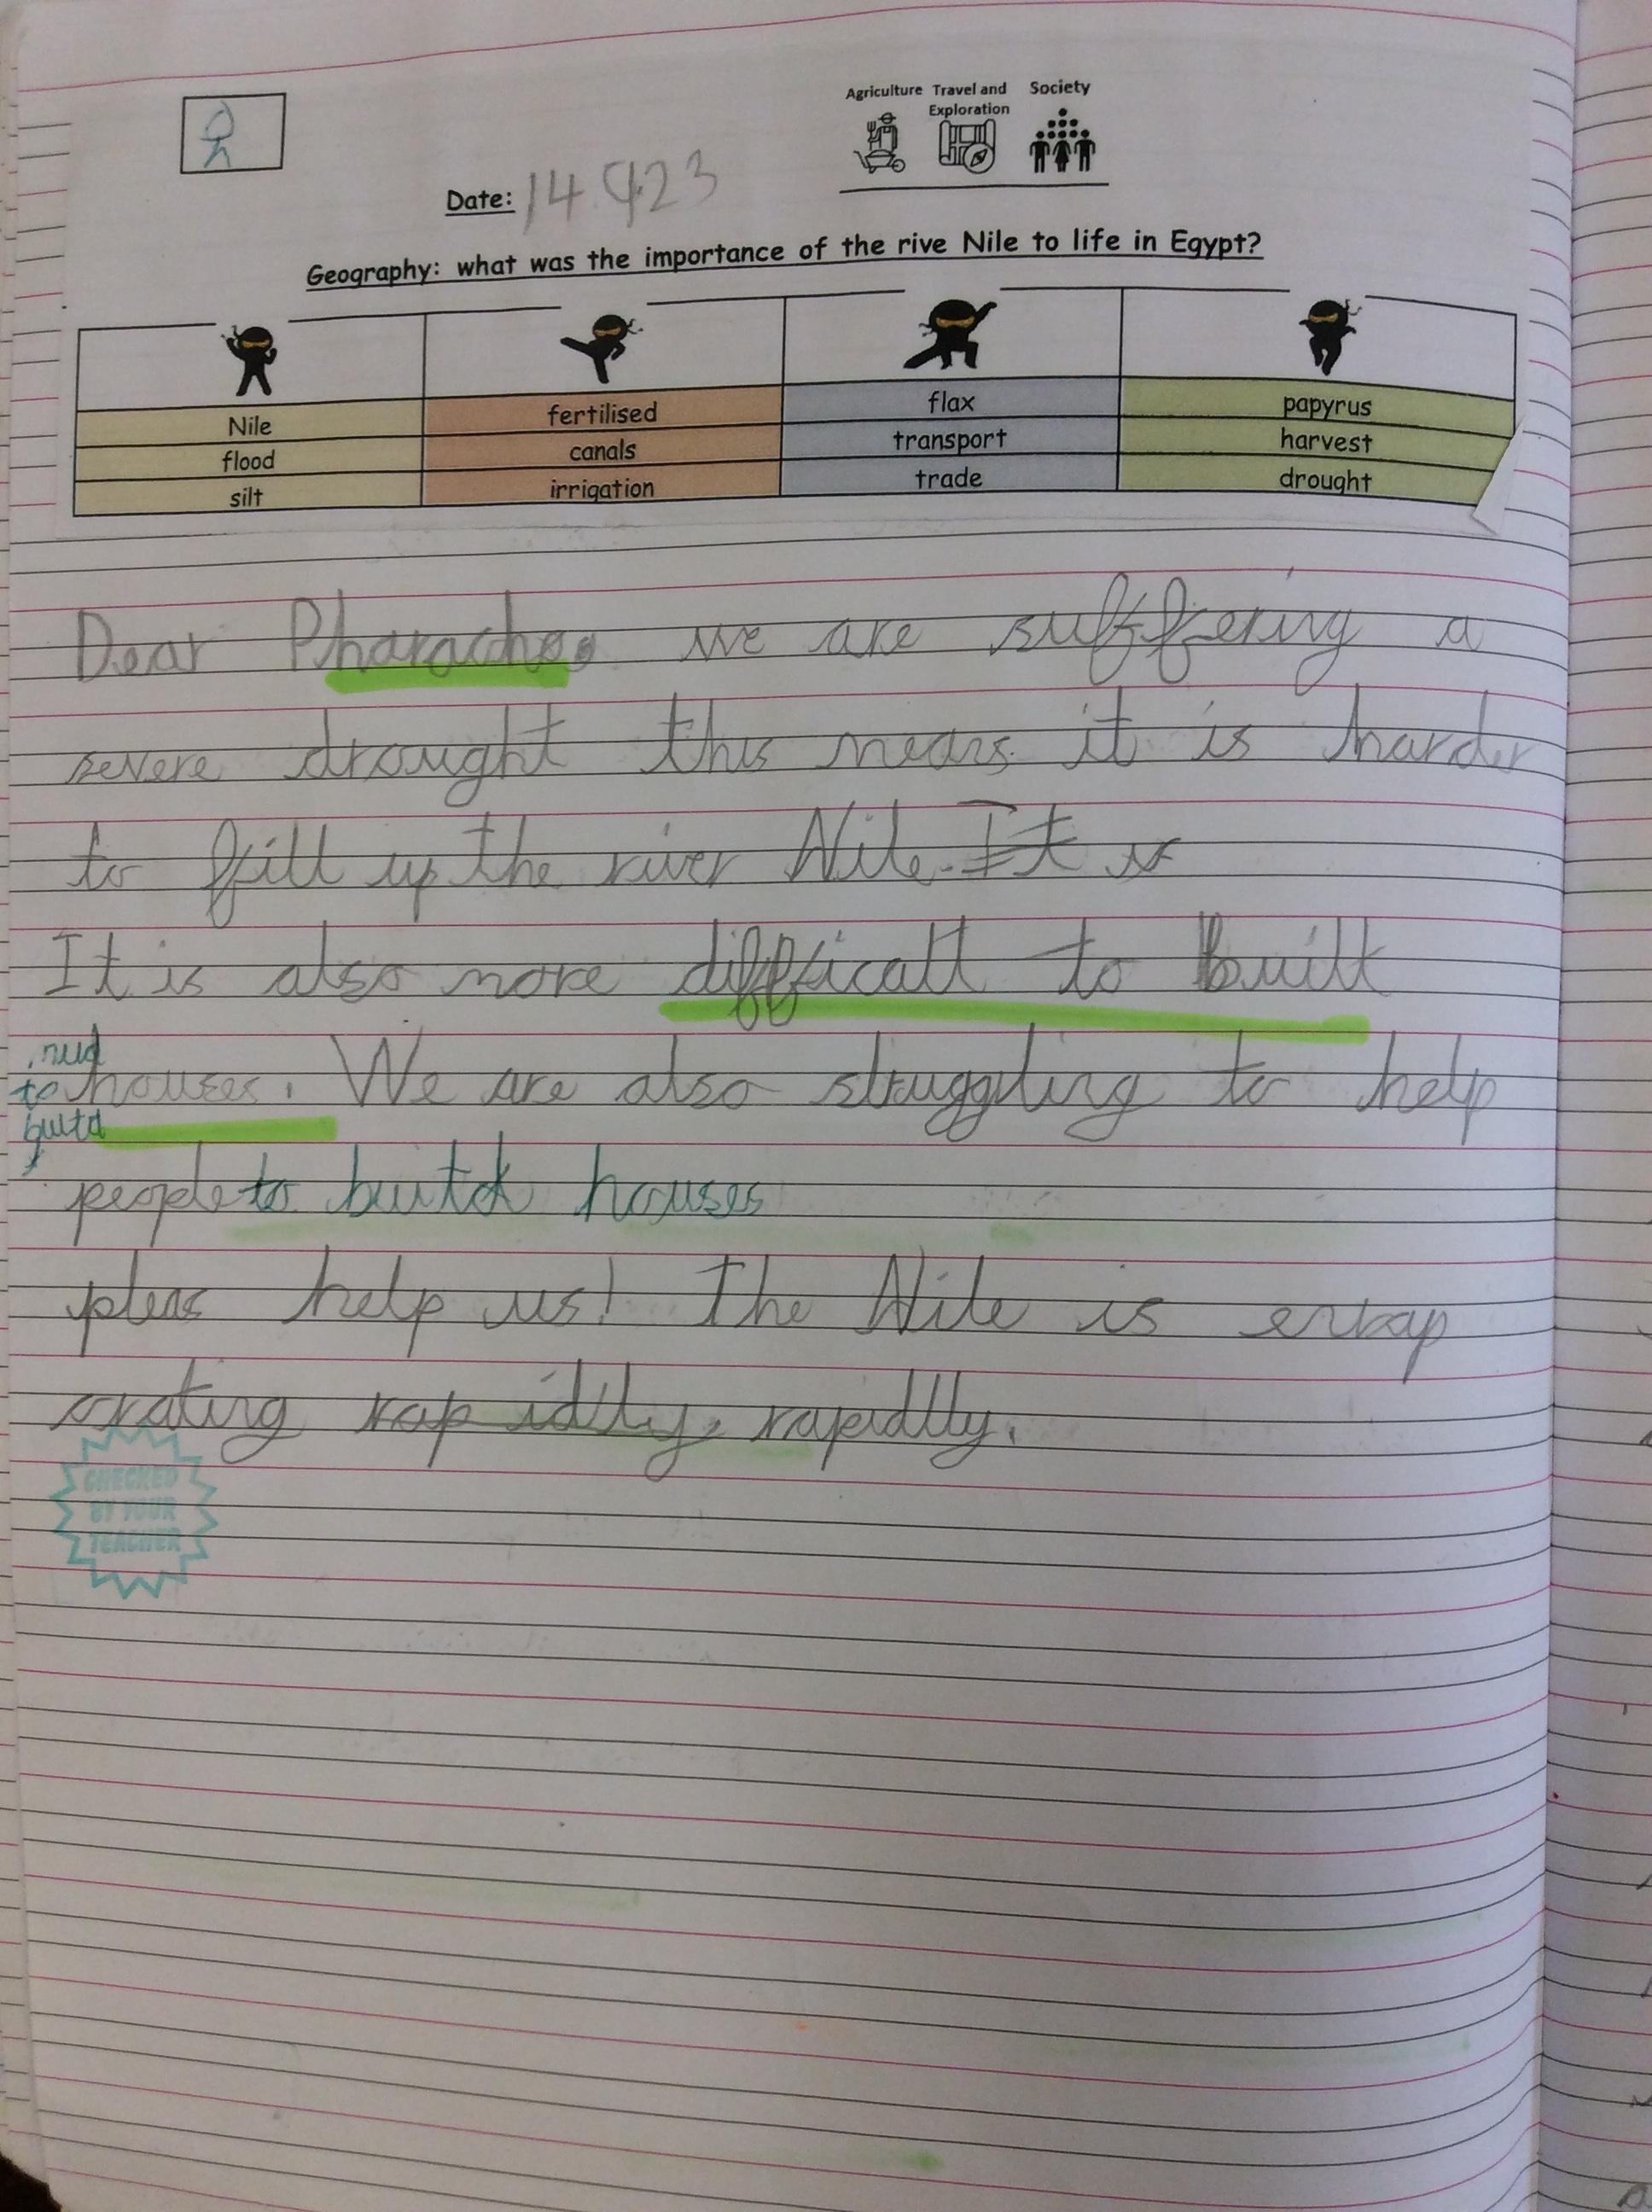 Agriculture Travel and Exploration Society
Date: 14.9.23
Geography: what was the importance of the rive Nile to life in Egypt?
Nile fertilised flax papyrus
flood canals transport harvest
silt irrigation trade drought
Dear we are suffering a
severe drought this means it is harder
to fill up the river Nile. It is
It is also more difficalt to built
to houses. We are also struggling to help
build
people to build houses
pleas help us! The Nile is
rapidlly.
CHECKED
BY YOUR
TEACHER